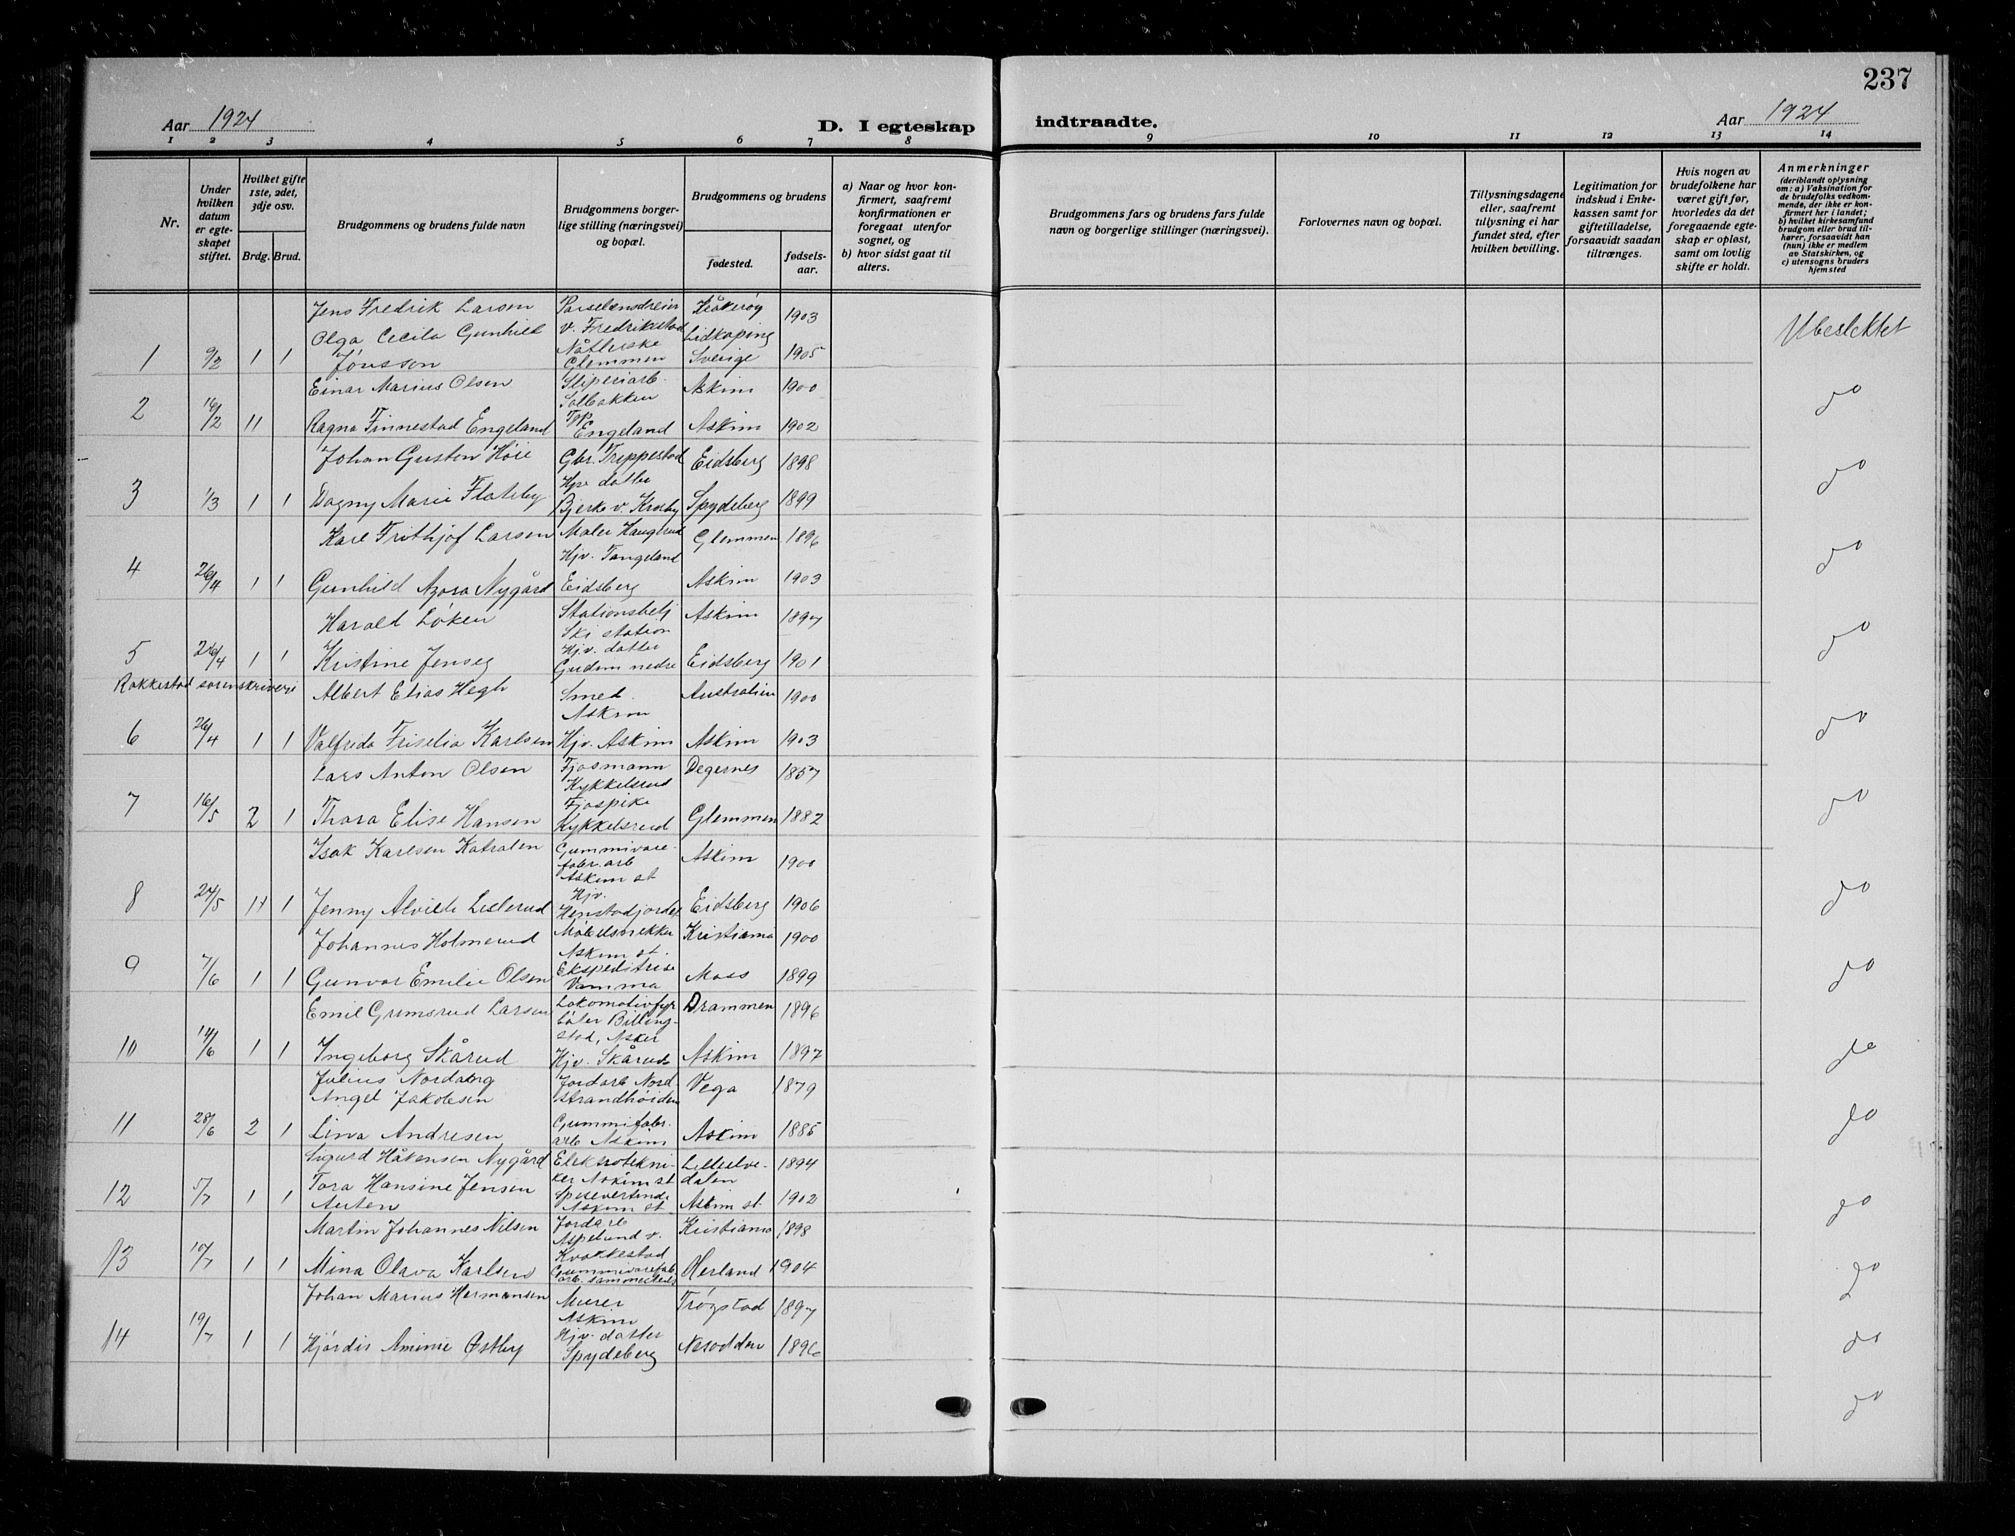 237
Aar 1924
D. I egteskap
indtraadte.
Aar 1924
1 2 3 4 5 6 7 8 9 10 11 12 13 14
Nr.
Under hvilken datum er egteskapet stiftet.
Hvilket gifte 1ste, 2det, 3dje osv.
Brdg. Brud.
Brudgommens og brudens fulde navn
Brudgommens borgerlige stilling (næringsvei) og bopæl.
Brudgommens og brudens
fødested.
fødselsaar.
a) Naar og hvor konfirmert, saafremt konfirmationen er foregaat utenfor sognet, og
b) hvor sidst gaat til alters.
Brudgommens fars og brudens fars fulde navn og borgerlige stillinger (næringsvei).
Forlovernes navn og bopæl.
Tillysningsdagene eller, saafremt tillysning ei har fundet sted, efter hvilken bevilling.
Legitimation for indskud i Enkekassen samt for giftetilladelse, forsaavidt saadan tiltrænges.
Hvis nogen av brudefolkene har været gift før, hvorledes da det foregaaende egteskap er opløst, samt om lovlig skifte er holdt.
Anmerkninger
(deriblandt oplysning om: a) Vaksination for de brudefolks vedkommende, der ikke er konfirmert her i landet; b) hvilket kirkesamfund brudgom eller brud tilhører, forsaavidt han (hun) ikke er medlem av Statskirken, og c) utensogns bruders hjemsted
Jens Fredrik Larsen 1903
v. Fredrikstad
Olga Cecilia Gunhild Lidkøping
1 9/2 1 1 Jonsson Glemmen Sverige 1905 Ubeslektet
Einar Marius Olsen Sliperiarb. Askim 1900
Solbakken
2 16/2 1 1 Ragna Finnestad Engeland Engeland Askim 1902 do
Johan Gusten Høie Gbr. Trippestad Eidsberg 1898
datter
3 1/3 1 1 Dagny Marie Flateby Bjerke v. Spydeberg 1899 do
Karl Frithjof Larsen Maler Haugerud Glemmen 1896
Hjv. Tangeland
4 26/4 1 1 Gunhild Nygård Eidsberg Askim 1903 do
Harald Løken Stationsbetj Askim 1897
Ski station
Hjv. datter
5 26/4 1 1 Kristine Jenseg Gudem nedre Eidsberg 1901 do
Rakkestad sorenskriveri
Albert Elias Hegh Smed Australien 1900
Askim
6 26/4 1 1 Valfrida Friselia Karlsen Hjv. Askim Askim 1903 do
Lars Anton Olsen Fjosmann Degernes 1857
Kykkelsrud
Fjospike
7 16/5 2 1 Thora Elise Hansen Kykkelsrud Glemmen 1882 do
Isak Karlsen Katralen Gummivare- Askim 1900
fabr. arb
Askim st
Hjv.
8 24/5 1 1 Jenny Alvilde Leslerud Eidsberg 1906 do
Johannes Holmerud Møbelsnekker Kristiania 1900
Askim st.
Ekspeditrise
9 7/6 1 1 Gunvor Emilie Olsen Vamma Moss 1899 do
Emil Grimsrud Larsen Lokomotivfyr Drammen 1896
bøter Billing-
stad, Asker
10 14/6 1 1 Ingeborg Skårud Hjv. Skårud Askim 1897 do
Julius Nordaberg Jordarb Nord- Vega 1879
Angel Jakobsen strandhøiden
Gummifabr.
11 28/6 2 1 Lina Andresen arb Askim Askim 1885 do
Sigurd Håkensen Nygård Elektrotekni- 1894
ker Askim st
Tora Hansine Jensen
12 5/7 1 1 Auten Askim st Askim st. 1902 do
Martin Johannes Nilsen Jordarb Kristiania 1898
Aspelund v.
Kvakkestad
13 10/7 1 1 Mina Olava Karlsen Gummivarefab. Herland 1904 do
Johan Marius Hermansen Murer Trøgstad 1897
Askim
Hjv. datter
14 19/7 1 1 Hjørdis Aminie Østby Spydeberg Nesodden 1896 do
do